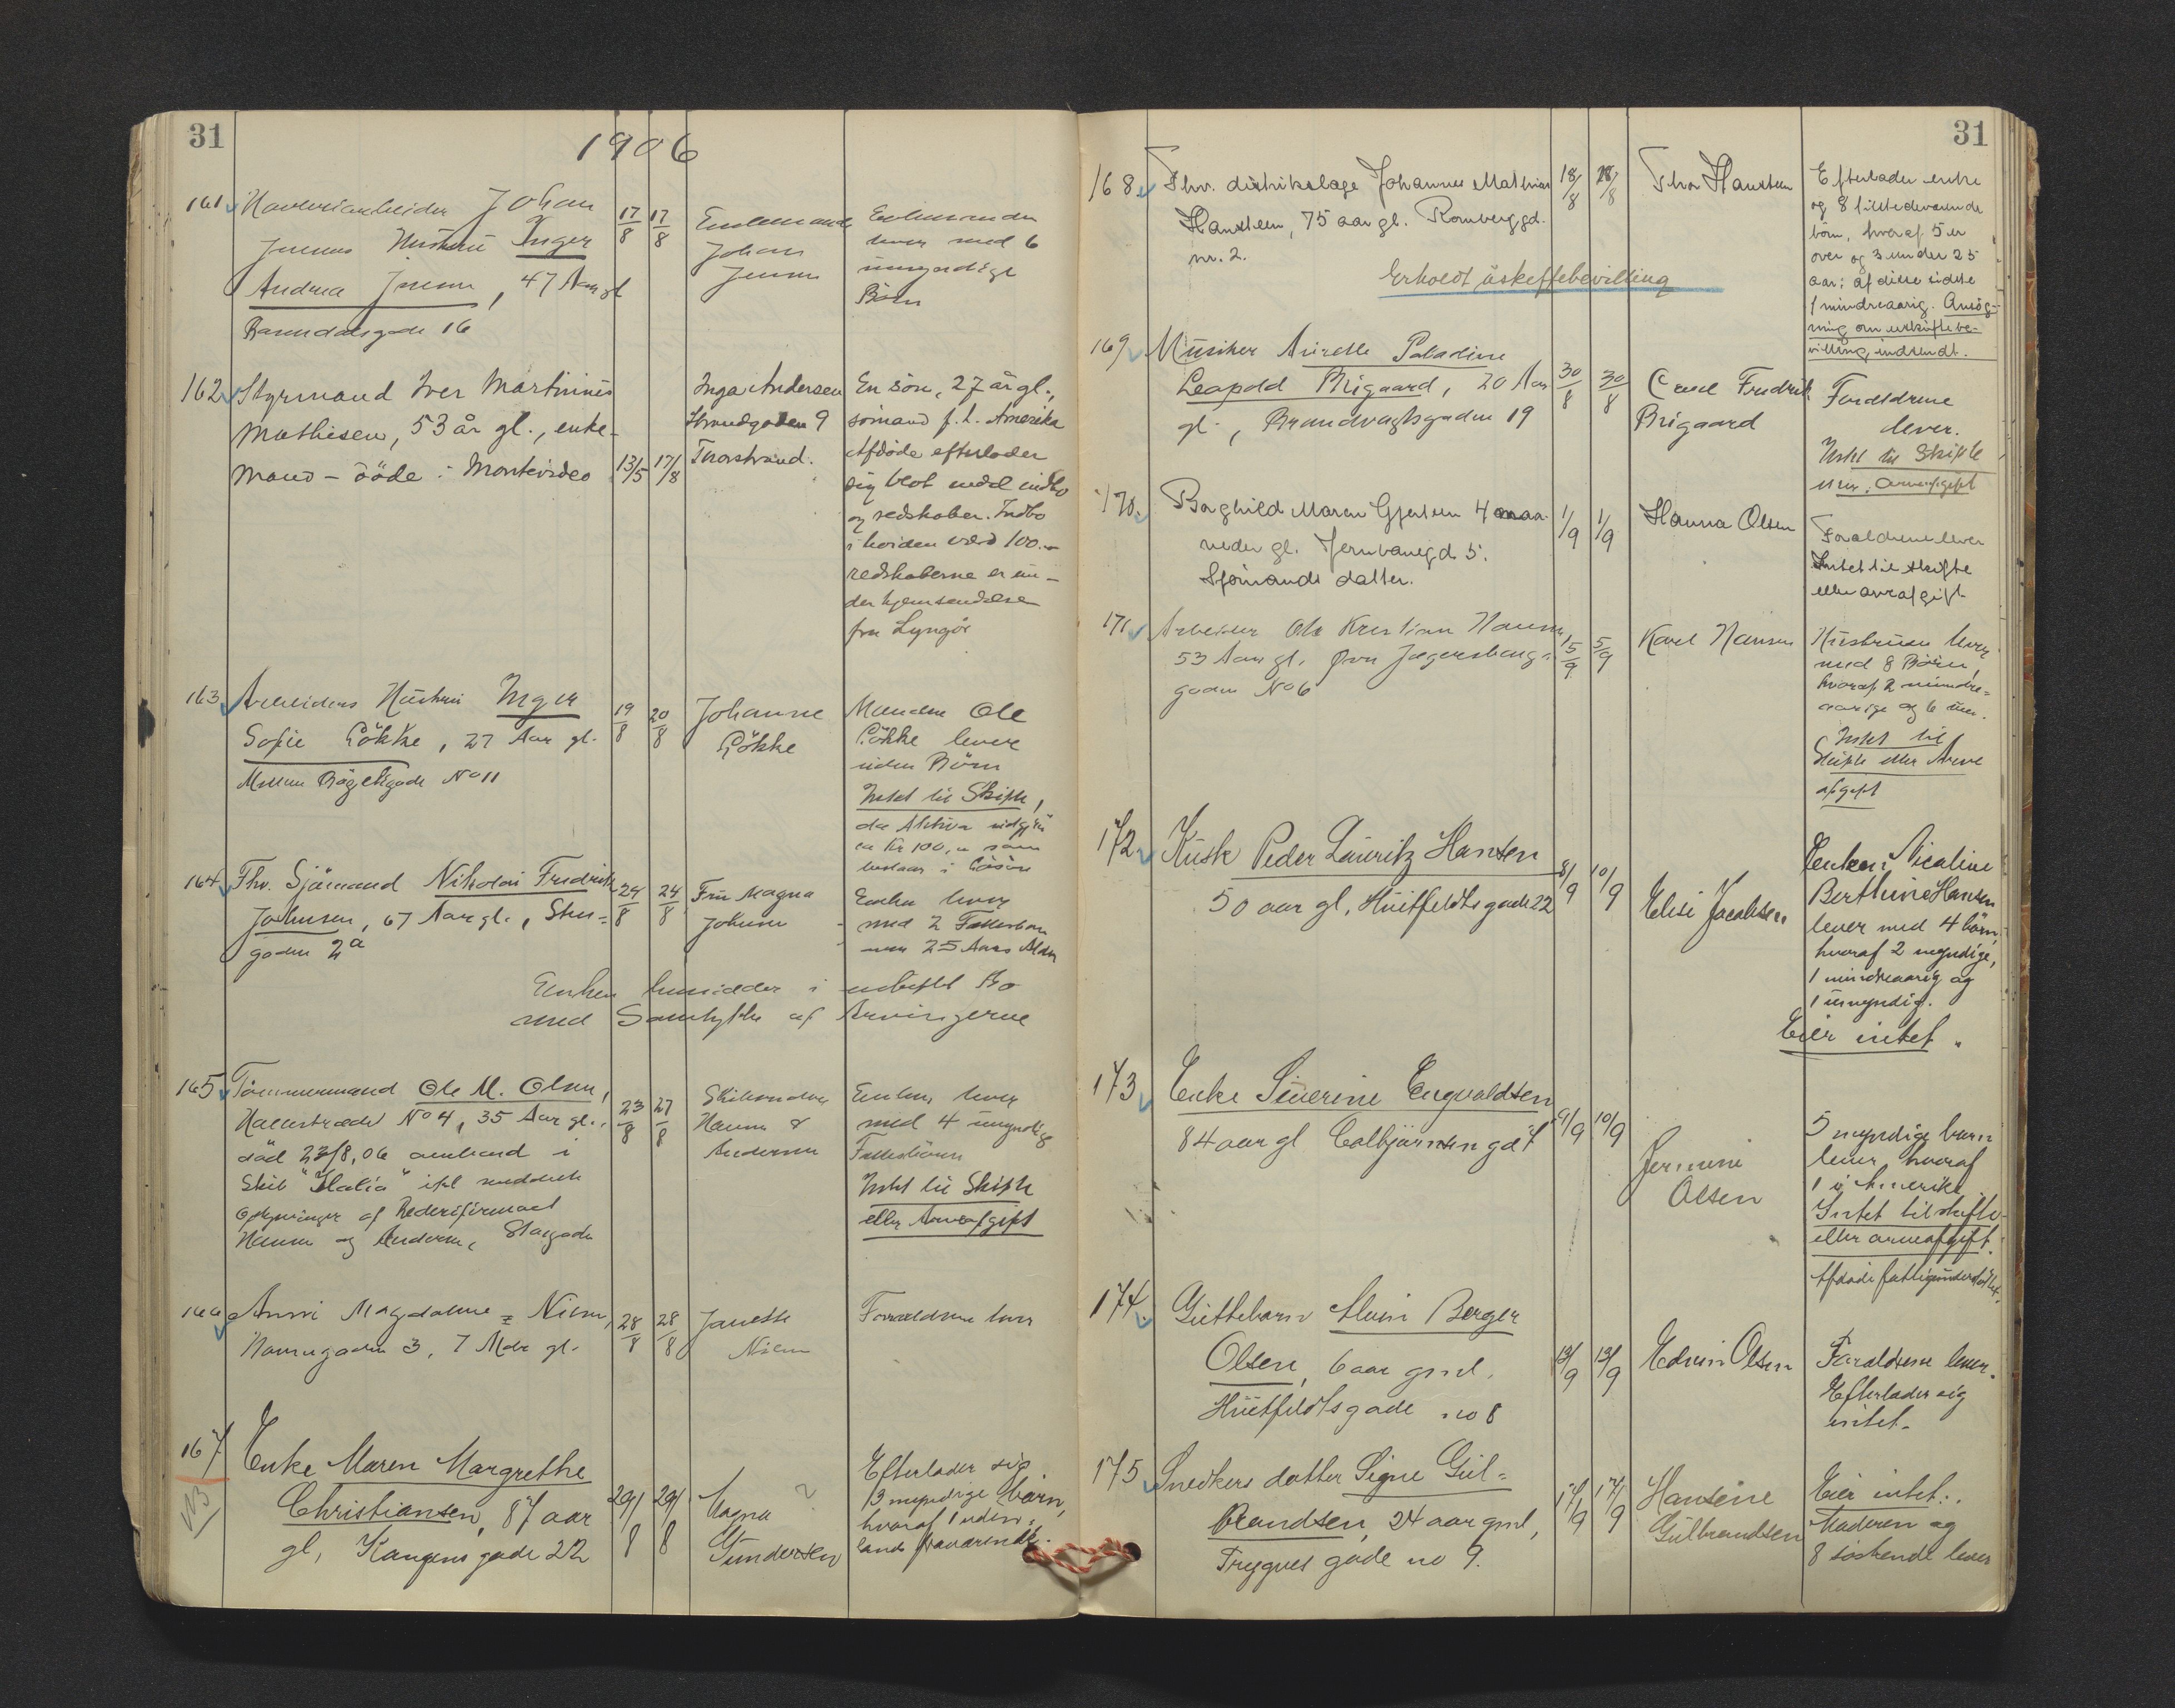 31
1906
161
Johan
Jensens Hustru Inger
Andrea Jensen, 47 Aar gl
16
17/8 17/8
Enkemand
Johan
Jensen
Enkemanden
lever med 6
umyndige
Börn
162 Styrmand Iver Martinius
Mathisen, 53 år gl., enke-
mand - döde i Montevideo
13/5 17/8
Inga Andersen
Strandgaden 9
Torsstrand.
En sön, 27 år gl.,
sömand f. t. Amerika
Afdöde efterlader
sig blot endel indbo
og redskaber. Indbo
i höiden værd 100.-
redskaberne er un-
der hjemsendelse
fra Lyngör
163 Arbeiders Hustru Inger
Sofie Gökke, 27 Aar gl.
No 11
19/8 20/8
Johanne
Gökke
Manden Ole
Gökke lever
uden Börn
Intet til Skifte,
da Aktiva udgjör
ca Kr 100, som
bestaar i Lösöre
164 Fhv. Sjömand Nikolai Fredrik
Johnsen, 67 Aar gl., Sten-
gaden 2a
24/8 24/8
Fru Magna
Johnsen
Enken lever
med 2 Fællesbörn
over 25 Aars Alder
Enken hensidder i uskiftet Bo
med Samtykke af Arvingerne
165 Tömmermand Ole M. Olsen,
No 4, 35 Aar gl.,
död 23/8,06 ombord i
Skib "Italia" ifl meddelte
Oplysninger af Rederifirmaet
Hansen og Andersen, Storgaden
23/8 27/8
Hansen &
Andersen
Enken lever
med 4 umyndige
Fællesbörn
Intet til Skifte
eller Arveafgift
166 Anni Magdalene Nilsen,
3, 7 Mdr gl.
28/8 28/8
Janette
Nilsen
Forældrene lever
167 Enke Maren Margrethe
Christiansen, 87 aar
gl, Kongensgade 22
NB
29/8 29/8
Magna ?
Gundersen
Efterlader sig
3 myndige börn,
hvoraf 1 uden-
lands fraværende.
31
168 Fhv. distriktslæge Johannes Mathias
Hansteen, 75 aar gl.
nr. 2.
18/8 28/8
Thor Hansteen
Efterlader enke
og 8 tilstedeværende
börn, hvoraf 5 er
over og 3 under 25
aar; af disse sidste
1 mindreaarig. Ansög-
ning om uskiftebe-
villing indsendt.
Erholdt uskiftebevilling
169 Musiker Paladine
Leopold Brigaard, 20 Aar
gl., Brandvagtsgaden 19
30/8 30/8
Carl Fredrik
Brigaard
Forældrene
lever.
Intet til Skifte
eller Arveafgift
170. Borghild Maren Gjertsen 4 maa-
neder gl. Jernbanegd 5.
Sjömands datter.
1/9 1/9
Hanna Olsen
Forældrene lever
Intet til skifte
eller arvafgift
171 Arbeider Ole Kristian Hansen
53 Aar gl. Övre Jegersberg-
gaden No 6
5/9 5/9
Karl Hansen
Hustruen lever
med 8 Börn,
hvoraf 2 mindre-
aarige og 6 um.
Intet til
Skifte eller Arve
afgift
172. Kusk Peder Lauritz Hansen
50 aar gl, Huitfeldts gade 22
8/9 10/9
Elise Jacobsen
Enken: Nicoline
Berthine Hansen
lever med 4 börn,
hvoraf 2 myndige,
1 mindreaarig og
1 umyndig.
Eier intet.
173. Enke Severine Engvaldsen
84 aar gl Colbjörnsen gd
9/9 10/9
Jermine
Olsen
5 myndige barn
lever, hvoraf
1 i Amerika
Intet til skifte
eller arveafgift.
Afdöde fattigunderstöttet.
174. Guttebarn Alvin Berger
Olsen, 6 aar gml.
Huitfeldts gade no 8
13/9 13/9
Edvin Olsen
Forældrene lever.
Efterlader sig
intet.
175 Snedkers datter Signe Gul-
brandsen, 24 aar gml,
Trygves gade no 9.
17/9 17/9
Hansine
Gulbrandsen
Eier intet.
Moderen og
8 söskende lever